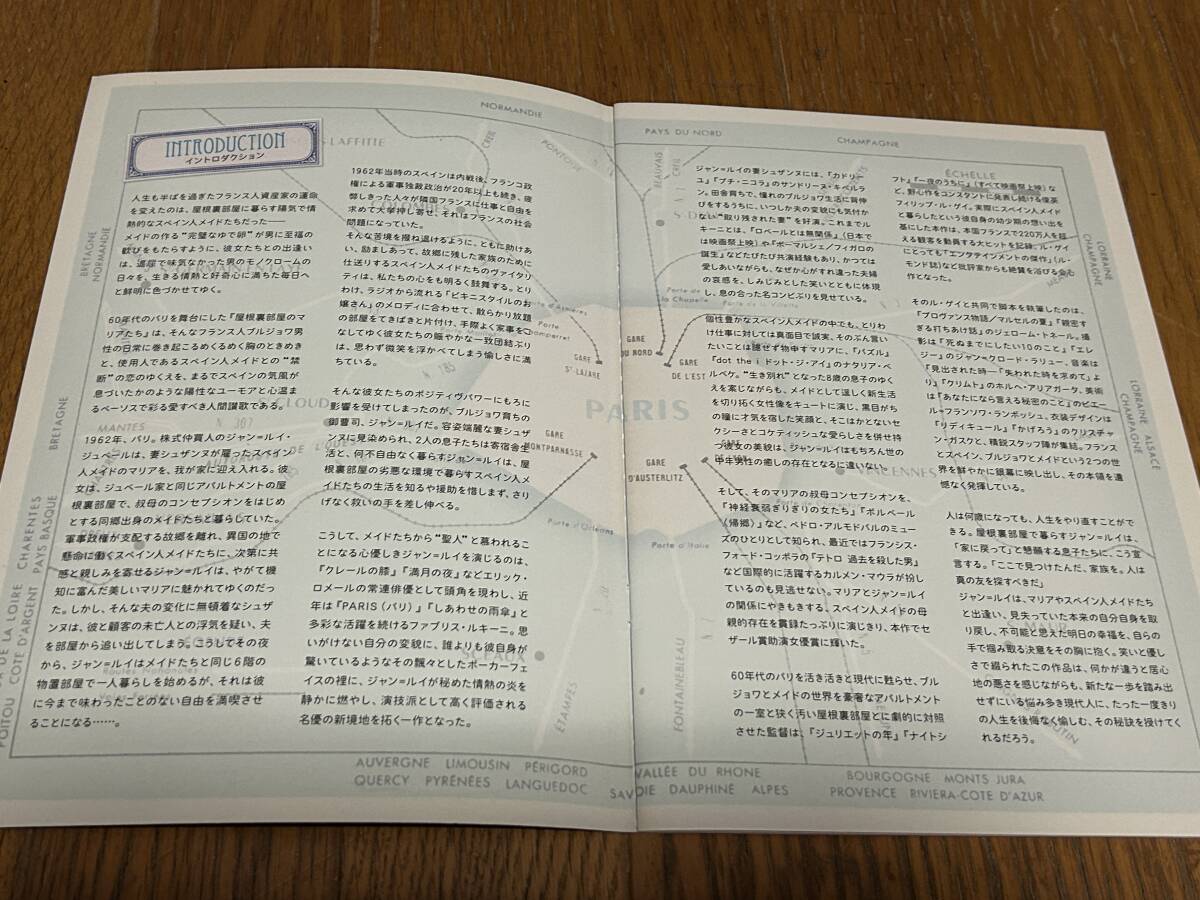 INTRODUCTION
イントロダクション
人生も半ばを過ぎたフランス人資産家の運命
を変えたのは、屋根裏部屋に暮らす陽気で情
熱的なスペイン人メイドたちだった──
メイドの作る“完璧なゆで卵”が男に至福の
歓びをもたらすように、彼女たちとの出逢い
は、温厚で味気なかった男のモノクロームの
日々を、生きる情熱と好奇心に満ちた毎日へ
と鮮明に色づかせてゆく。
60年代のパリを舞台にした『屋根裏部屋のマ
リアたち』は、そんなフランス人ブルジョワ男
性の日常に巻き起こるめくるめく胸のときめき
と、使用人であるスペイン人メイドとの“禁
断”の恋のゆくえを、まるでスペインの気風が
息づいたかのような陽性なユーモアと心温ま
るペーソスで彩る愛すべき人間讃歌である。
1962年、パリ。株式仲買人のジャン=ルイ・
ジュベールは、妻シュザンヌが雇ったスペイン
人メイドのマリアを、我が家に迎え入れる。彼
女は、ジュベール家と同じアパルトメントの屋
根裏部屋で、叔母のコンセプシオンをはじめ
とする同郷出身のメイドたちと暮らしていた。
軍事政権が支配する故郷を離れ、異国の地で
懸命に働くスペイン人メイドたちに、次第に共
感と親しみを寄せるジャン=ルイは、やがて機
知に富んだ美しいマリアに魅かれてゆくのだっ
た。しかし、そんな夫の変化に無頓着なシュザ
ンヌは、彼と顧客の未亡人との浮気を疑い、夫
を部屋から追い出してしまう。こうしてその夜
から、ジャン=ルイはメイドたちと同じ6階の
物置部屋で一人暮らしを始めるが、それは彼
に今まで味わうことのない自由を満喫させ
ることになる……。
1962年当時のスペインは内戦後、フランコ政
権による軍事独裁政治が20年以上も続き、疲
弊しきった人々が隣国フランスに仕事と自由を
求めて大挙押し寄せ、それはフランスの社会
問題になっていた。
そんな苦境を撥ね退けるように、ともに助けあ
い、励ましあって、故郷に残した家族のために
仕送りするスペイン人メイドたちのヴァイタリ
ティは、私たちの心をも明るく鼓舞する。とり
わけ、ラジオから流れる「ビキニスタイルのお
嬢さん」のメロディに合わせて、散らかり放題
の部屋をてきぱきと片付け、手際よく家事をこ
なしてゆく彼女たちの賑やかな一致団結ぶり
は、思わず微笑を浮かべてしまう愉しさに満
ちている。
そんな彼女たちのポジティヴパワーにもろに
影響を受けてしまったのが、ブルジョワ育ちの
御曹司、ジャン=ルイだ。容姿端麗な妻シュザ
ンヌに見染められ、2人の息子たちは寄宿舎生
活と、何不自由なく暮らすジャン=ルイは、屋
根裏部屋の劣悪な環境で暮らすスペイン人メ
イドたちの生活を知るや援助を惜しまず、さり
げなく救いの手を差し伸べる。
こうして、メイドたちから“聖人”と慕われるこ
とになる心優しきジャン=ルイを演じるのは、
『クレールの膝』『満月の夜』などエリック・
ロメールの常連俳優として頭角を現わし、近
年は『PARIS（パリ）』『しあわせの雨傘』と
多彩な活躍を続けるファブリス・ルキーニ。思
いがけない自分の変貌に、誰よりも彼自身が
驚いているようなその飄々としたポーカーフェ
イスの裡に、ジャン=ルイが秘めた情熱の炎を
静かに燃やし、演技派として高く評価される
名優の新境地を拓く一作となった。
ジャン=ルイの妻シュザンヌには、『カドリー
ユ』『プチ・ニコラ』のサンドリーヌ・キベルラ
ン。田舎育ちで、憧れのブルジョワ生活に背伸
びをするうちに、いつしか夫の変貌にも気付か
ない“取り残された妻”を好演。これまでルキ
ーニとは、『ロベールとは無関係』（日本で
は映画祭上映）や『ボーマルシェ/フィガロの
誕生』などたびたび共演経験もあり、かつては
愛しあいながらも、なぜか心がすれ違った夫婦
の哀感を、しみじみとした笑いとともに体現
し、息の合った名コンビぶりを見せている。
個性豊かなスペイン人メイドの中でも、とりわ
け仕事に対しては真面目で誠実、そのぶん言い
たいことは臆せず物申すマリアに、『パズル』
『dot the i ドット・ジ・アイ』のナタリア・ベ
ルベケ。“生き別れ”となった8歳の息子のゆく
えを案じながらも、メイドとして逞しく新生活
を切り拓く女性像をキュートに演じ、黒目がち
の瞳に才気を宿した笑顔と、そこはかとないセ
クシーさとコケティッシュな愛らしさを併せ持
つ彼女の美貌は、ジャン=ルイはもちろん世の
中年男性の癒しの存在となるに違いない。
そして、そのマリアの叔母コンセプシオンを、
『神経衰弱ぎりぎりの女たち』『ボルベール
〈帰郷〉』など、ペドロ・アルモドバルのミュー
ズのひとりとして知られ、最近ではフランシス・
フォード・コッポラの『テトロ 過去を殺した男』
など国際的に活躍するカルメン・マウラが扮し
ているのも見逃せない。マリアとジャン=ルイ
の関係にやきもきする、スペイン人メイドの母
親的存在を貫録たっぷりに演じきり、本作でセ
ザール賞助演女優賞に輝いた。
60年代のパリを活き活きと現代に甦らせ、ブル
ジョワとメイドの世界を豪奢なアパルトメント
の一室と狭く汚い屋根裏部屋とに劇的に対照
させた監督は、『ジュリエットの年』『ナイトシ
フト』『一夜のうちに』（すべて映画祭上映）な
ど、野心作をコンスタントに発表し続ける俊英
フィリップ・ル・ゲイ。実際にスペイン人メイド
と暮らしたという彼自身の幼少期の想い出を
基にした本作は、本国フランスで220万人を超
える観客を動員する大ヒットを記録。ル・ゲイ
にとっても「エンタテインメントの傑作」（ル・
モンド誌）など批評家からも絶賛を浴びる会心
作となった。
そのル・ゲイと共同で脚本を執筆したのは、
『プロヴァンス物語/マルセルの夏』『親密す
ぎる打ちあけ話』のジェローム・トネール。撮
影は『死ぬまでにしたい10のこと』『エレ
ジー』のジャン=クロード・ラリュー、音楽は
『見出された時─「失われた時を求めて」よ
り』『クリムト』のホルヘ・アリアガータ、美術
は『あなたになら言える秘密のこと』のピエー
ル=フランソワ・ランボッシュ、衣装デザインは
『リディキュール』『かげろう』のクリスチャ
ン・ガスクと、精鋭スタッフ陣が集結。フランス
とスペイン、ブルジョワとメイドという2つの世
界を鮮やかに銀幕に映し出し、その本領を遺
憾なく発揮している。
人は何歳になっても、人生をやり直すことがで
きる。屋根裏部屋で暮らすジャン=ルイは、
「家に戻って」と懇願する息子たちに、こう宣
言する。「ここで見つけたんだ、家族を。人は
真の友を探すべきだ」
ジャン=ルイは、マリアやスペイン人メイドたち
と出逢い、見失っていた本来の自分自身を取
り戻し、不可能と思えた明日の幸福を、自らの
手で掴み取る決意をその胸に抱く。笑いと優し
さで綴られたこの作品は、何かが違うと居心
地の悪さを感じながらも、新たな一歩を踏み出
せずにいる悩み多き現代人に、たった一度きり
の人生を後悔なく愉しむ、その秘訣を授けてく
れるだろう。
NORMANDIE
PAYS DU NORD
CHAMPAGNE
ÉCHELLE
LAFFITTE
PONTOISE
CREIL
BEAUVAIS
CREIL
BRETAGNE
NORMANDIE
LORRAINE
CHAMPAGNE
COLOMBES
ST-GERMAIN
Porte d'Asnières
Porte Champerret
Porte Maillot
Porte de la Chapelle
Porte de la Villette
GARE
ST-LAZARE
GARE
DU NORD
GARE
DE L'EST
PARIS
GARE
MONTPARNASSE
GARE
D'AUSTERLITZ
GARE
ST-CLOUD
N 185
N 307
MANTES
AUTOROUTE DE L'OUEST
VINCENNES
BRETAGNE
LORRAINE ALSACE
CHAMPAGNE
Porte d'Orléans
Porte d'Italie
SCEAUX
ÉTAMPES
FONTAINEBLEAU
N 7
Routes Nationales
CHARENTES
PAYS BASQUE
DE LA LOIRE
COTE D'ARGENT
POITOU
AUVERGNE LIMOUSIN PÉRIGORD
QUERCY PYRÉNÉES LANGUEDOC
VALLÉE DU RHONE
SAVOIE DAUPHINE ALPES
BOURGOGNE MONTS JURA
PROVENCE RIVIERA-COTE D'AZUR